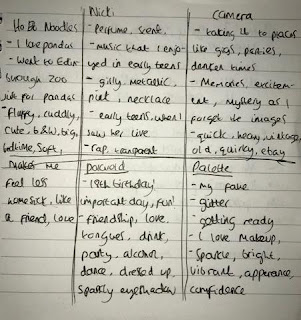 Ho Bo Noodles
- I love pandas
- Went to Edin
through zoo
just for pandas
- fluffy, cuddly,
cute, b&w, big,
bedtime, soft,
makes me
feel less
home sick, like
a friend, love
Nicki
- Perfume, scent,
- music that I enjo-
yed in early teens
- girly, metallic,
pink, necklace
- early teens, when I
saw her live
- rap, transparent
Polaroid
- 18th birthday
important day, fun
- friendship, love,
tongues, drink,
party, alcohol,
dance, dressed up,
sparkly eyeshadow
Camera
- taking it to places
like gigs, parties,
darker times
- Memories, excitem-
ent, mystery as I
forget the images
- quick, heavy, vintage,
old, quirky, ebay
Palette
- my fave
- glitter
- getting ready
- I love makeup,
- Sparkle, bright,
vibrant, apperance,
confidence